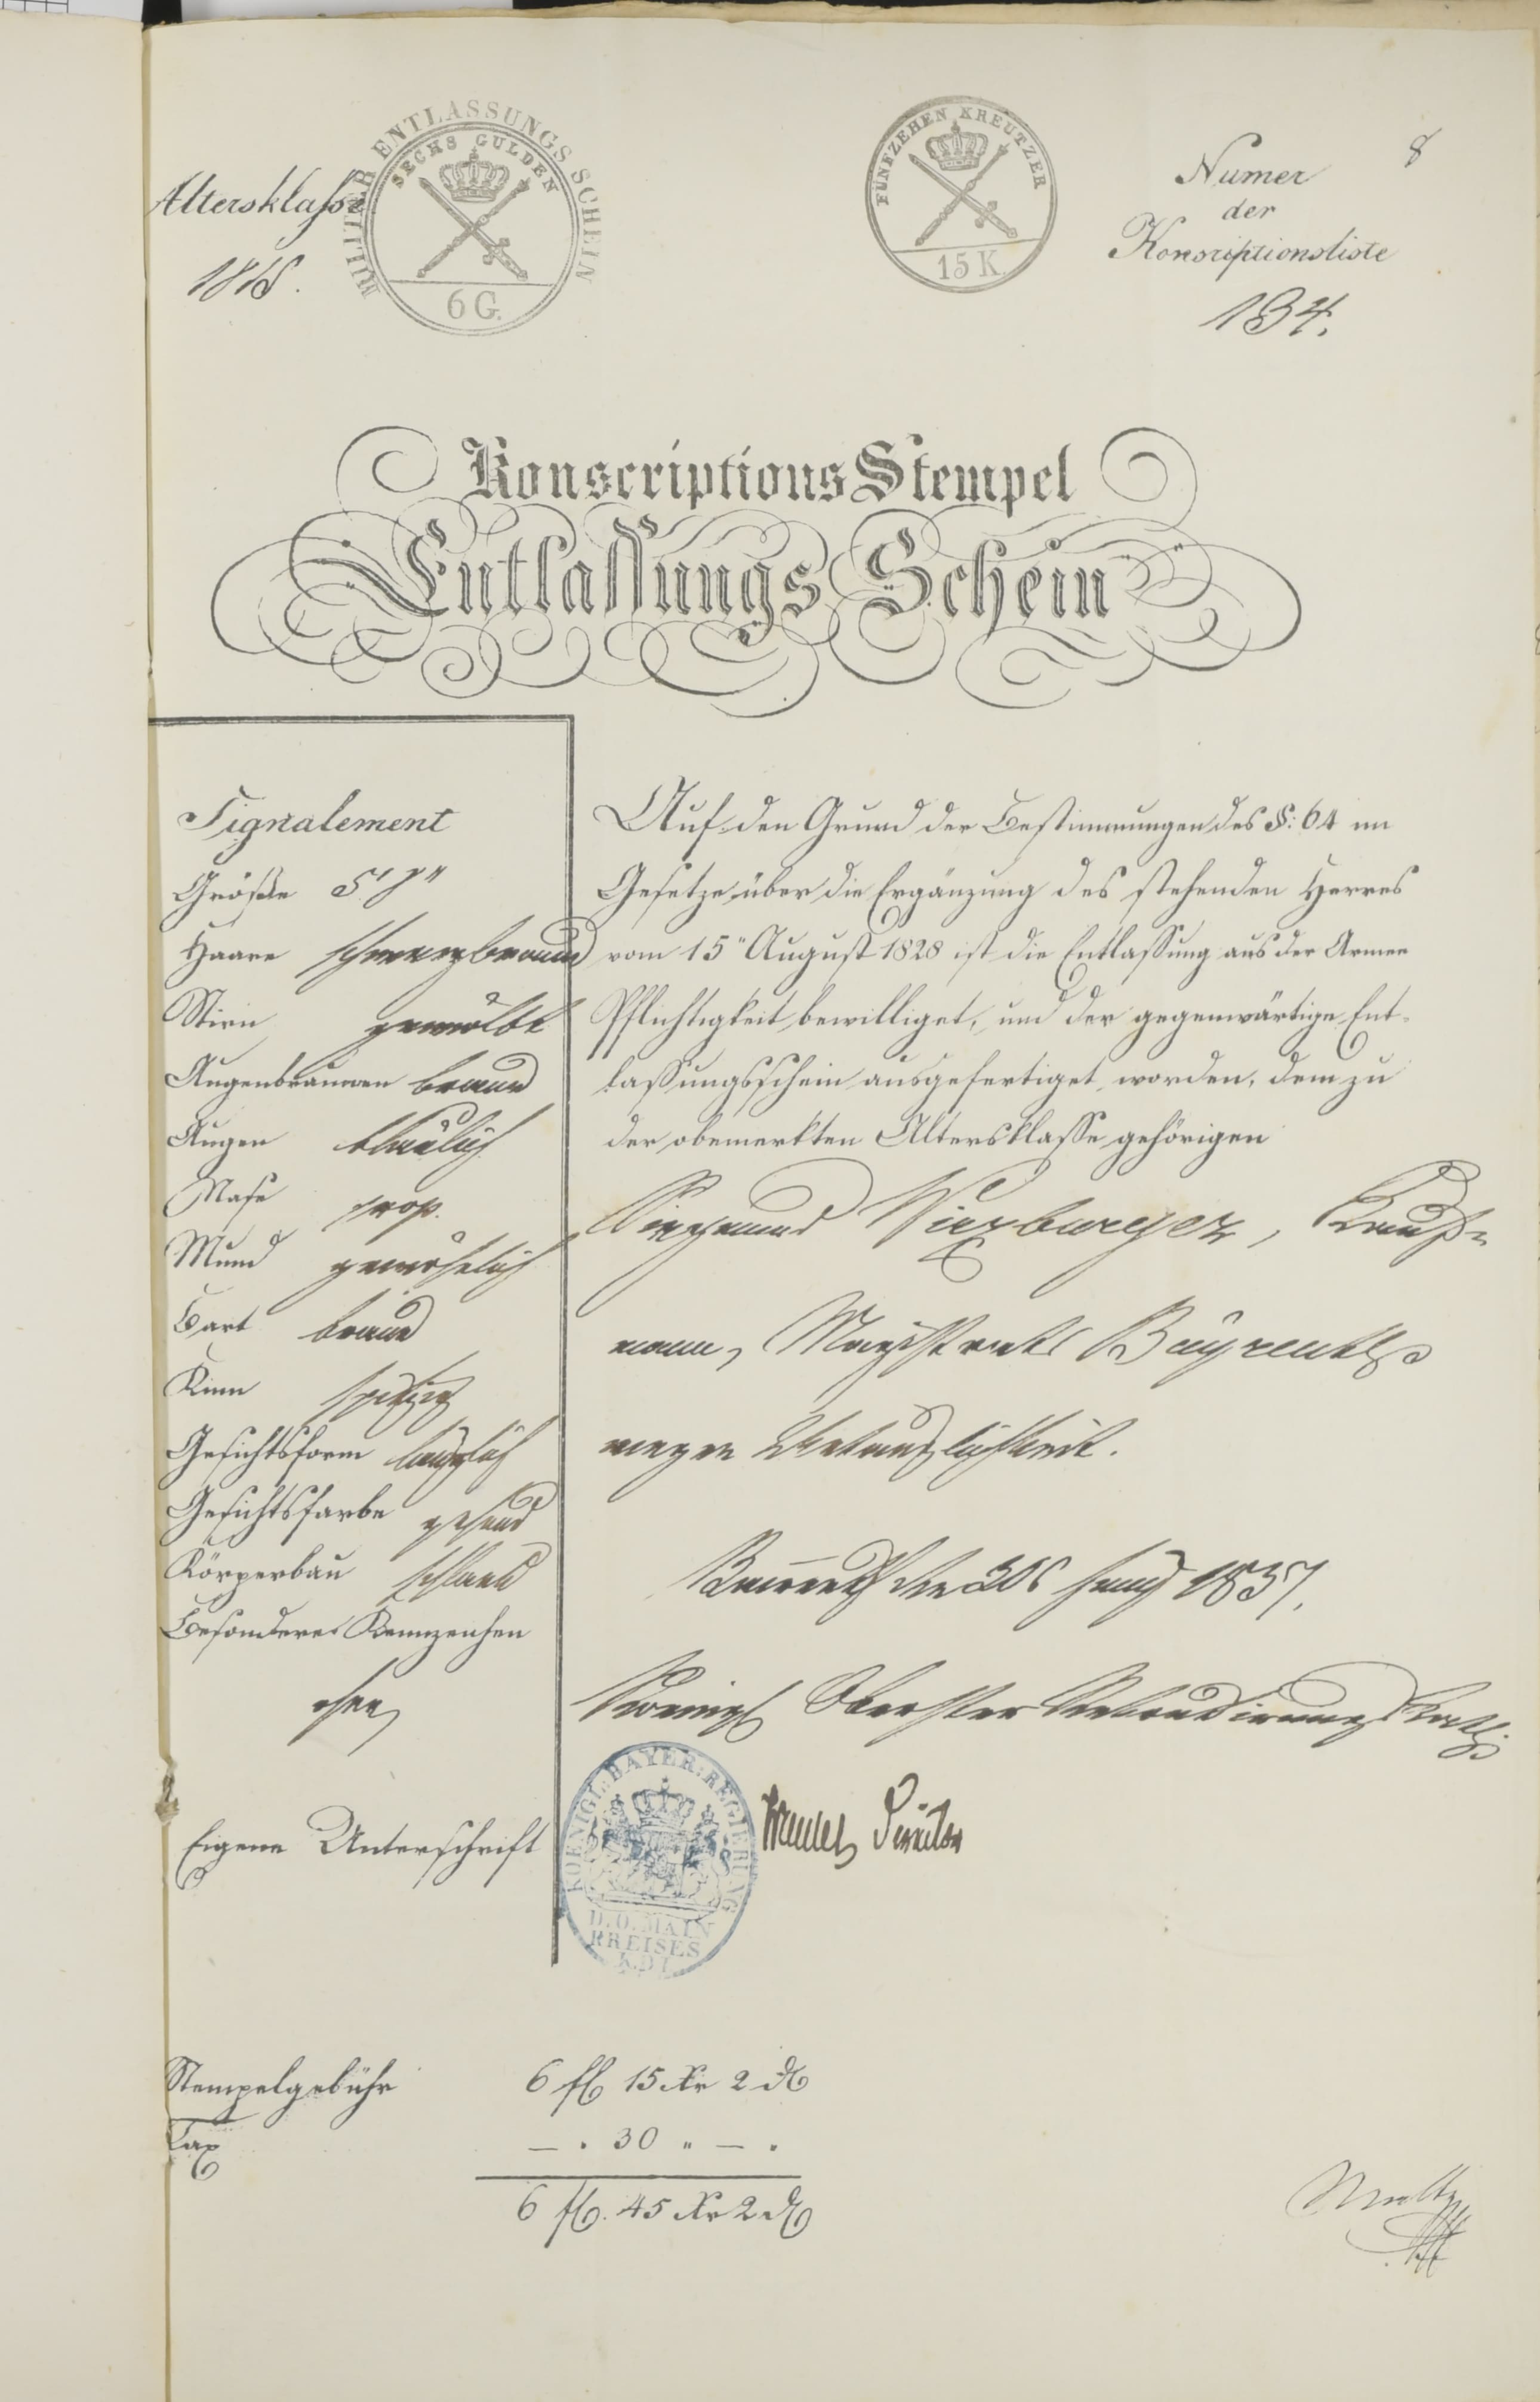 8
MILITÄR ENTLASSUNGS SCHEIN
SECHS GULDEN
6 G.
FÜNFZEHEN KREUTZER
15 K.
Altersklasse
1816.
Numer
der
Konscriptionsliste
134.
Konscriptions Stempel
Entlassungs Schein
Signalement
Größe 5' 7"
Haare schwarzbraun
Stirn gewölbt
Augenbraunen braun
Augen blaulich
Nase prop.
Mund gewöhnlich
Bart braun
Kinn spitzig
Gesichtsform länglich
Gesichtsfarbe gesund
Körperbau schlank
Besondere Kennzeichen
ohne
Eigene Unterschrift
Auf den Grund der Bestimmungen des §: 64 im
Gesetze über die Ergänzung des stehenden Heeres
vom 15" August 1828 ist die Entlassung aus der Armee
Pflichtigkeit bewilliget, und der gegenwärtige Ent-
lassungsschein ausgefertiget worden, dem zu
der obemerkten Altersklasse gehörigen
Siegmund Würzburger, Kauf-
mann, Magistrats Bayreuth
wegen Untauglichkeit.
Bayreuth den 30 1837.
Königl Oberster Rekrutirungs Rath
KOENIGL: BAYER: REGIERUNG
D. O. MAIN
KREISES
K. D. I.
Direktor
Stempelgebühr 6 fl 15 Xr 2 d
Tax — . 30 " — .
6 fl. 45 Xr 2 d